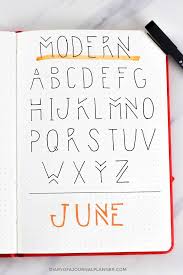 MODERN
ABCDEFG
HIJKLMNO
PQRSTUV
WXYZ
JUNE
DIARYOFAJOURNALPLANNER.COM